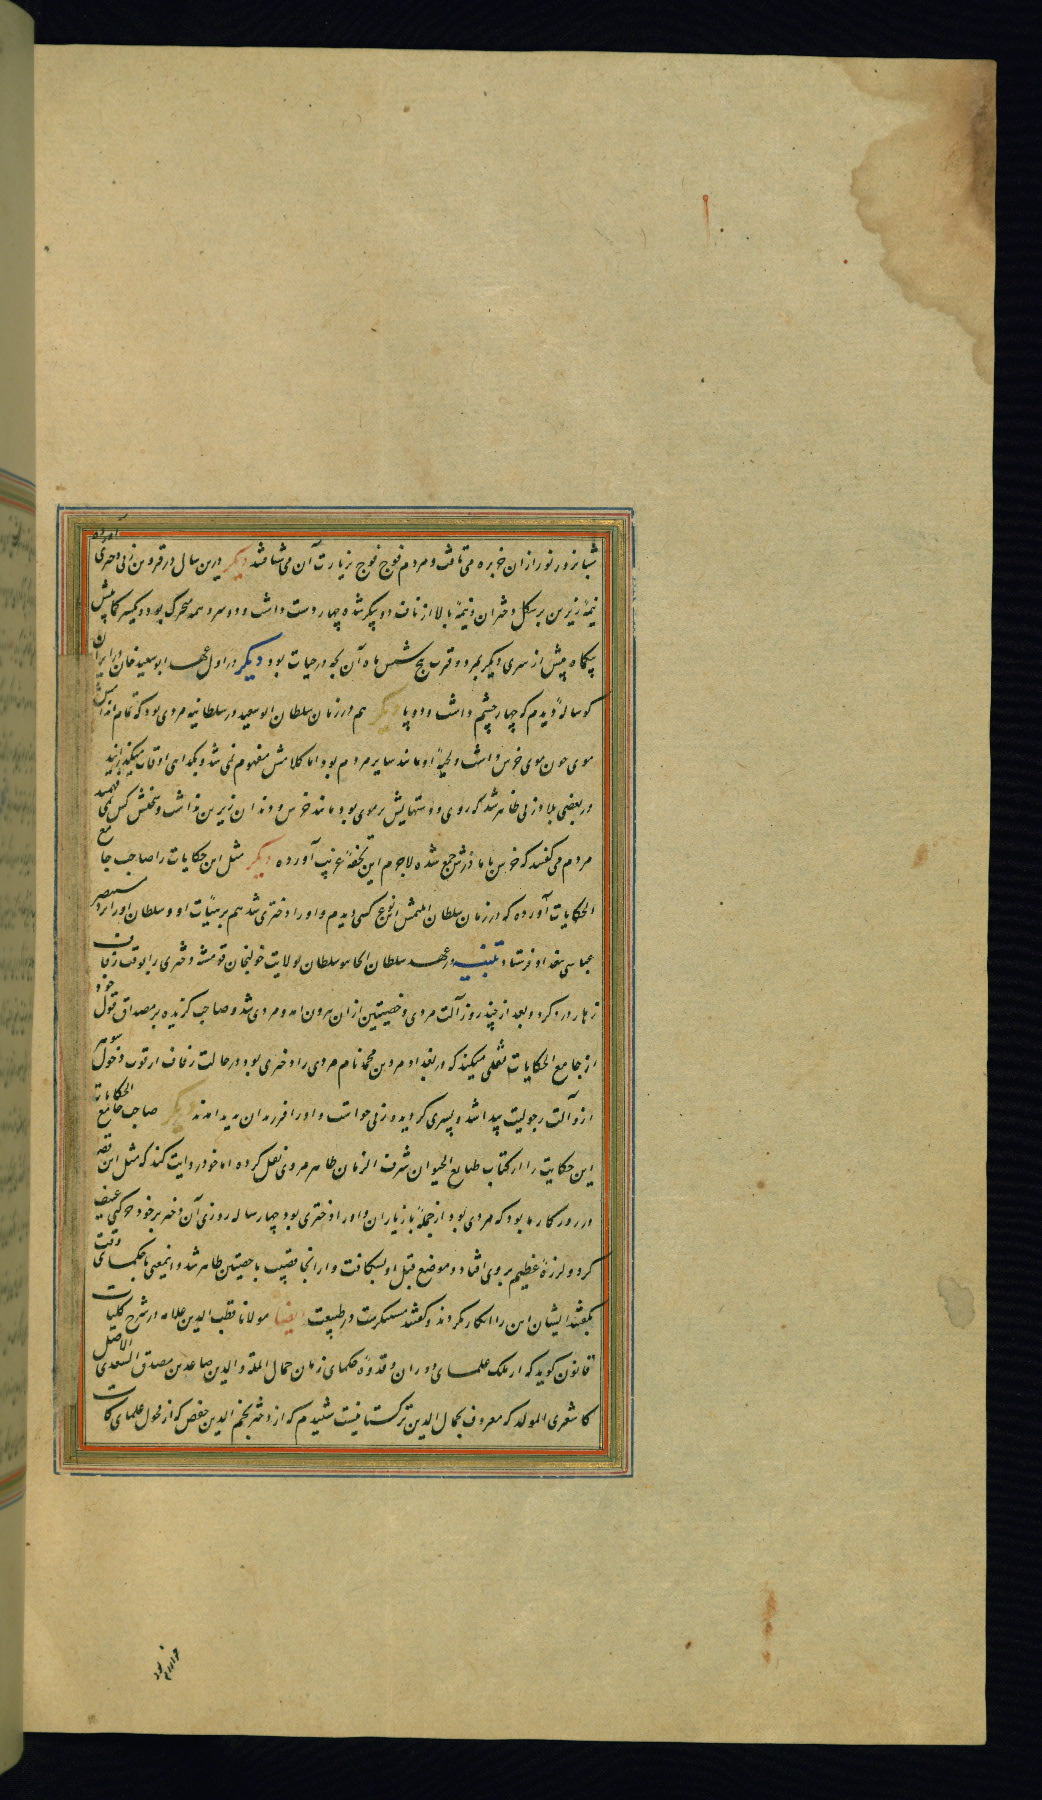 شبانروز نور ازان خبره می تافت و مردم فوج فوج بزیارت آن می شتافتند دیکر درین سال در قزوین زنی دختری آورده
نیمهٔ زیرین بر شکل دختران و نیمهٔ بالا از ناف دو پیکر شده چهار دست داشت و دو سر و همه متحرک بود و یکسر کمابیش
یکماه پیش از سری دیکر بمرد و قرب پنج شش ماه آن بچه در حیات بود دیکر در اول عهد ابو سعید خان در ایران
کوسالهٔ دیدم که چهار چشم داشت و دو پا دیکر هم در زمان سلطان ابو سعید در سلطانیه مردی بود که تمام اندامش
موی چون موی خرس داشت و لحیهٔ او مانند سایر مردم بود اما کلامش مفهوم نمی شد و بکدای اوقات میکذرانید
در بعضی بلاد زنی ظاهر شد که روی و دستهایش پر موی بود مانند خرس و دندان زیرین نداشت و سخنش کس نمی فهمید
مردم می کفتند که خرس با مادرش جمع شده لاجرم این تحفهٔ غریب آورده دیکر مثل این حکایات را صاحب جامع
الحکایات آورده که در زمان سلطان ایلتمش ازین نوع کسی دیدم و او را دختری شد هم بر هیئات او و سلطان او را نزد مستنصر
عباسی ببغداد فرستاد تنبیه در عهد سلطان الجایتو سلطان بولایت خولنجان قومشه دختری را بوقت زفاف
زهار درد کرد و بعد از چند روز آلت مردی و خصیتین ازان بیرون آمد و مردی شد و صاحب کزیده بر مصداق قول خود
از جامع الحکایات نقلی میکند که در بغداد مردمن محمد نام مردی را دختری بود در حالت زفاف از قوت دخول شوهر
ازو آلت رجولیت پیدا شد و پسری کردید و زنی خواست و او را فرزندان پدید آمدند دیکر صاحب جامع الحکایات
این حکایت را از کتاب طبایع الحیوان شرف الزمان طاهر مروزی نقل کرده اما خود روایت کند که مثل این قصه
در روزکار ما بود که مردی بود از جملهٔ بازیاران و او را دختری بود چهار ساله روزی آن دختر بر خود حرکتی عنیف
کرد و لرزهٔ عظیم بر وی افتاد و موضع قبل او بشکافت و از انجا قضیب با خصیتین ظاهر شد و اینمعنی با حکمای وقت
بکفتند ایشان این را انکار نکردند و کفتند مستنکر نیست در طبیعت ایضا مولانا قطب الدین علامه در شرح کلیات
قانون کوید که از ملک علمای دوران و قدوهٔ حکمای زمان جمال الملة و الدین صاعد بن مصدق السعدی الاصل
کاشغری المولد که معروف بجمال الدین ترکستانیست شنیدم که از دختر نجم الدین حفص که از فحول علمای کات
خوارزم بود